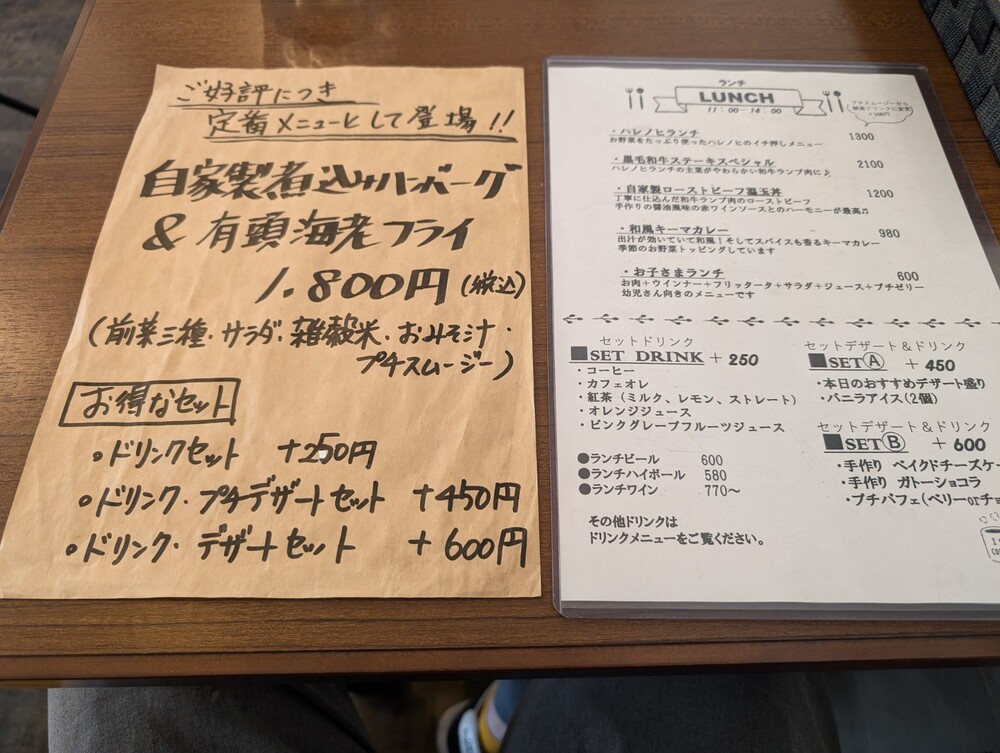 ご好評につき
定番メニューとして登場!!
自家製煮込みハンバーグ
& 有頭海老フライ
1.800円(税込)
(前菜三種・サラダ・雑穀米・おみそ汁・
プチスムージー)
お得なセット
・ドリンクセット +250円
・ドリンク・プチデザートセット +450円
・ドリンク・デザートセット +600円
ランチ
LUNCH
11:00~14:00
プチスムージーから
+100円
・ハレノヒランチ 1300
お野菜をたっぷり使ったハレノヒのイチ押しメニュー
・黒毛和牛ステーキスペシャル 2100
ハレノヒランチの主菜がやわらかい和牛ランプ肉に♪
・自家製ローストビーフ温玉丼 1200
丁寧に仕込んだ和牛ランプ肉のローストビーフ
手作りの醤油風味の赤ワインソースとのハーモニーが最高♫
・和風キーマカレー 980
出汁が効いていて和風!そしてスパイスも香るキーマカレー
季節のお野菜トッピングしています
・お子さまランチ 600
お肉+ウインナー+フリッタータ+サラダ+ジュース+プチゼリー
幼児さん向きのメニューです
セットドリンク
■SET DRINK +250
・コーヒー
・カフェオレ
・紅茶(ミルク、レモン、ストレート)
・オレンジジュース
・ピンクグレープフルーツジュース
●ランチビール 600
●ランチハイボール 580
●ランチワイン 770~
その他ドリンクは
ドリンクメニューをご覧ください。
セットデザート&ドリンク
■SETⒶ +450
・本日のおすすめデザート盛り
・バニラアイス(2個)
セットデザート&ドリンク
■SETⒷ +600
・手作り ベイクドチーズケー
・手作り ガトーショコラ
・プチパフェ(ベリーorチョ